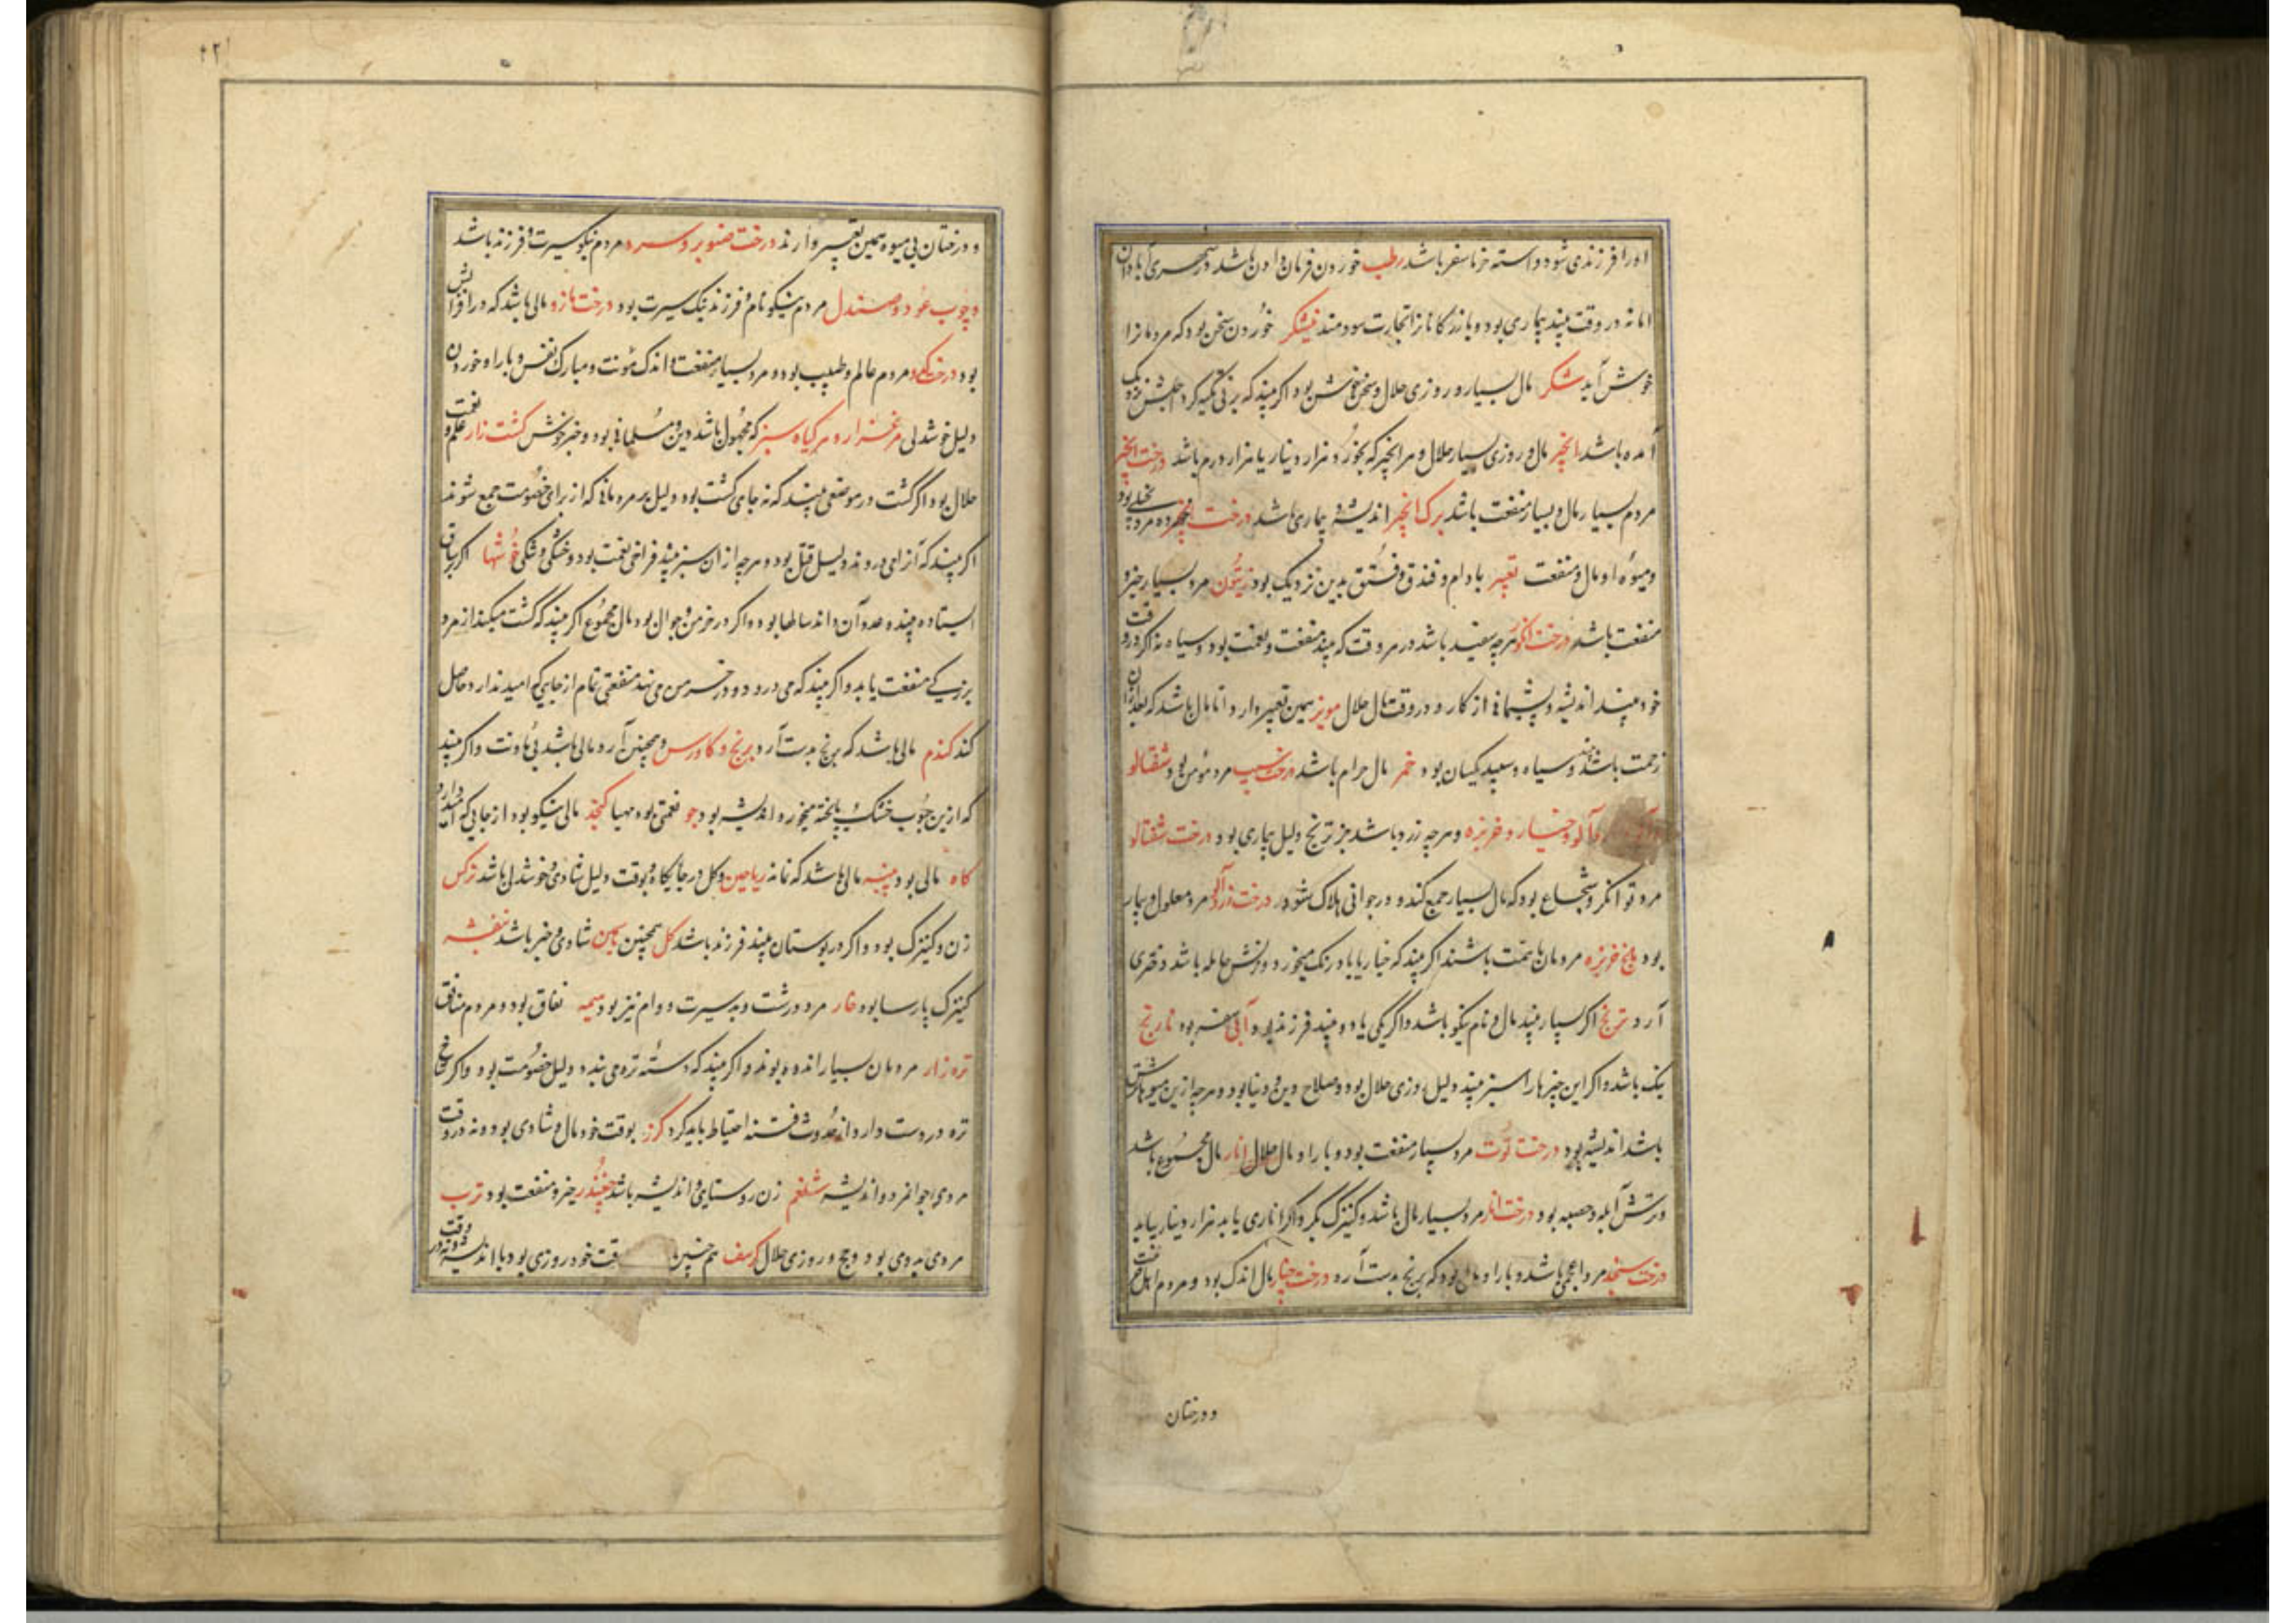 او را فرزندی شود و استه خرما سفر باشد رطب خوردن فرمان دادن باشد در شهری آبادان
اما نه در وقت بیند بیماری بود و بازرگانانرا تجارت سودمند نیشکر خوردن سخن بود که مردمانرا
خوش آید شکر مال بسیار و روزی حلال و سخن خوش بود اگر بیند که بر نی تکیه کرد
آمده باشد انجیر مال و روزی بسیار حلال و هر انجیر که بخورد هزار دینار یا هزار درم باشد درخت انجیر
مردم بسیار مال و بسیار منفعت باشد برک انجیر اندیشه و بیماری باشد درخت
و میوهٔ او مال و منفعت تعبیر بادام و فندق و فستق بدین نزدیک بود زیتون مرد بسیار خیر و
منفعت باشد درخت انگور هرچه سفید باشد در هر وقت که بیند منفعت و نعمت بود و سیاه نه اگر در وقت
خود بیند اندیشه و پشیمانی از کار و در وقت مال حلال مویز همین تعبیر دارد اما مال باشد که بعد از آن
زحمت باشد و سیاه و سپید یکسان بود خمر مال حرام باشد درخت سیب مرد مؤمن بود شفتالو
زردآلو و خیار و خربزه و هرچه زرد باشد بجز ترنج دلیل بیماری بود درخت شفتالو
مرد توانگر و شجاع بود که مال بسیار جمع کند و در جوانی هلاک شود درخت زردآلو مرد معلول و بیمار
بود بیخ خربزه مردمان باهمت باشند اگر بیند که خیار یا بادرنگ میخورد و زنش حامله باشد دختری
آرد ترنج اگر بسیار بیند مال و نام نیکو باشد و اگر یکی یا دو بیند فرزند بود آبی سفر بود نارنج
نیک باشد و اگر این چیزها را سبز بیند دلیل روزی حلال بود و صلاح دین و دنیا بود و هرچه ازین میوها ترش
باشد اندیشه بود درخت توت مرد بسیار منفعت بود و بار او مال حلال انار مال مجموع باشد
و ترش آبله و حصبه بود درخت انار مرد بسیار مال باشد و کنیزک بکر و اگر اناری یابد هزار دینار بیابد
درخت سنجد مرد اعجمی باشد و بار او مالی بود که برنج بدست آرد درخت چنار مال اندک بود و مردم اهل
و درختان
و درختان بی میوه همین تعبیر دارند درخت صنوبر و سرو مردم نیکو سیرت و فرزند باشد
و چوب عود و صندل مردم نیکو نام و فرزند نیک سیرت بود درخت مازو مالی باشد که در افزایش
بود درخت کدو مردم عالم و طبیب بود و مرد بسیار منفعت و اندک مؤنت و مبارک نفس و بار او خوردن
دلیل خوشدلی مرغزار و هر گیاه سبز که مجهول باشد دین و مسلمانی بود و خبر خوش کشت زار علم و نعمت
حلال بود اگر کشت در موضعی بیند که نه جای کشت بود دلیل بر مردمانی که از برای خصومت جمع شوند
اگر بیند که آنرا می درودند دلیل قتل بود و هرچه از ان سبز بیند فراخی نعمت بود و خشکی و تنگی خوشها اگر برساق
ایستاده بیند عدد آن داند سالها بود و اگر در خرمن و جوال بود مال مجموع اگر بیند که کشت میکند از مرد
بزرگی منفعت یابد و اگر بیند که می درود و در خرمن می نهد منفعتی تمام از جایی که امید ندارد حاصل
کند گندم مالی باشد که برنج بدست آرد برنج و گاورس و همچنین آرد مالی باشد بی معاونت و اگر بیند
که ازین حبوب خشک یا پخته میخورد اندیشه بود جو نعمتی بود مهیا کنجد مالی نیکو بود از جایی که امید دارد
کاه مالی بود پنبه مالی باشد که نماند ریاحین و گل در جایگاه و بوقت دلیل شادی و خوشدلی باشد نرگس
زن و کنیزک بود و اگر در بوستان بیند فرزند باشد گل همچنین یاسمن شادی و خیر باشد بنفشه
کنیزک پارسا بود خار مرد درشت و بدسیرت و وام نیز بود هیمه نفاق بود و مردم منافق
تره زار مردمان بسیار اندوه بوند و اگر بیند که دستهٔ تره می بندد دلیل خصومت بود و اگر شاخ
تره در دست دارد از حدوث فتنه احتیاط باید کرد گزر بوقت خود مال و شادی بود و نه در وقت
مردی جوانمرد و اندیشه شلغم زن روستایی و اندیشه باشد چغندر خیر و منفعت بود ترب
مردی بدوی بود و حج و روزی حلال کرسف هم چنین قت خود روزی بود با اندیشه و نه در وقت